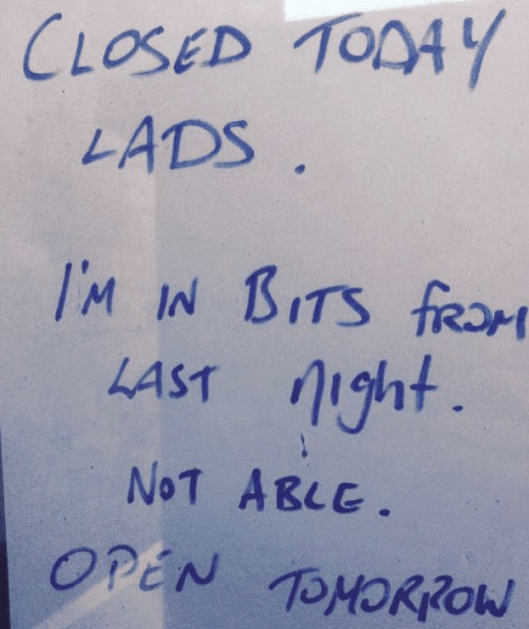 CLOSED TODAY
LADS.
I'M IN BITS FROM
LAST night.
NOT ABLE.
OPEN TOMORROW